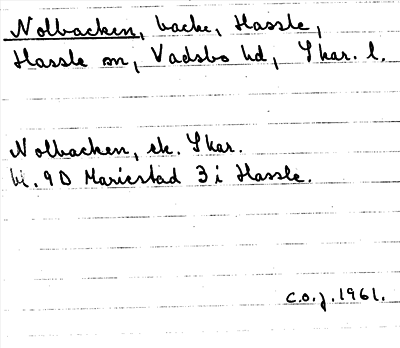 Nolbacken, backe, Hassle,
Hassle sn, Vadsbo hd, Skar. l.
Nolbacken, ek. Skar.
bl. 9D Mariestad 3 i Hassle.
C.O.J. 1961.